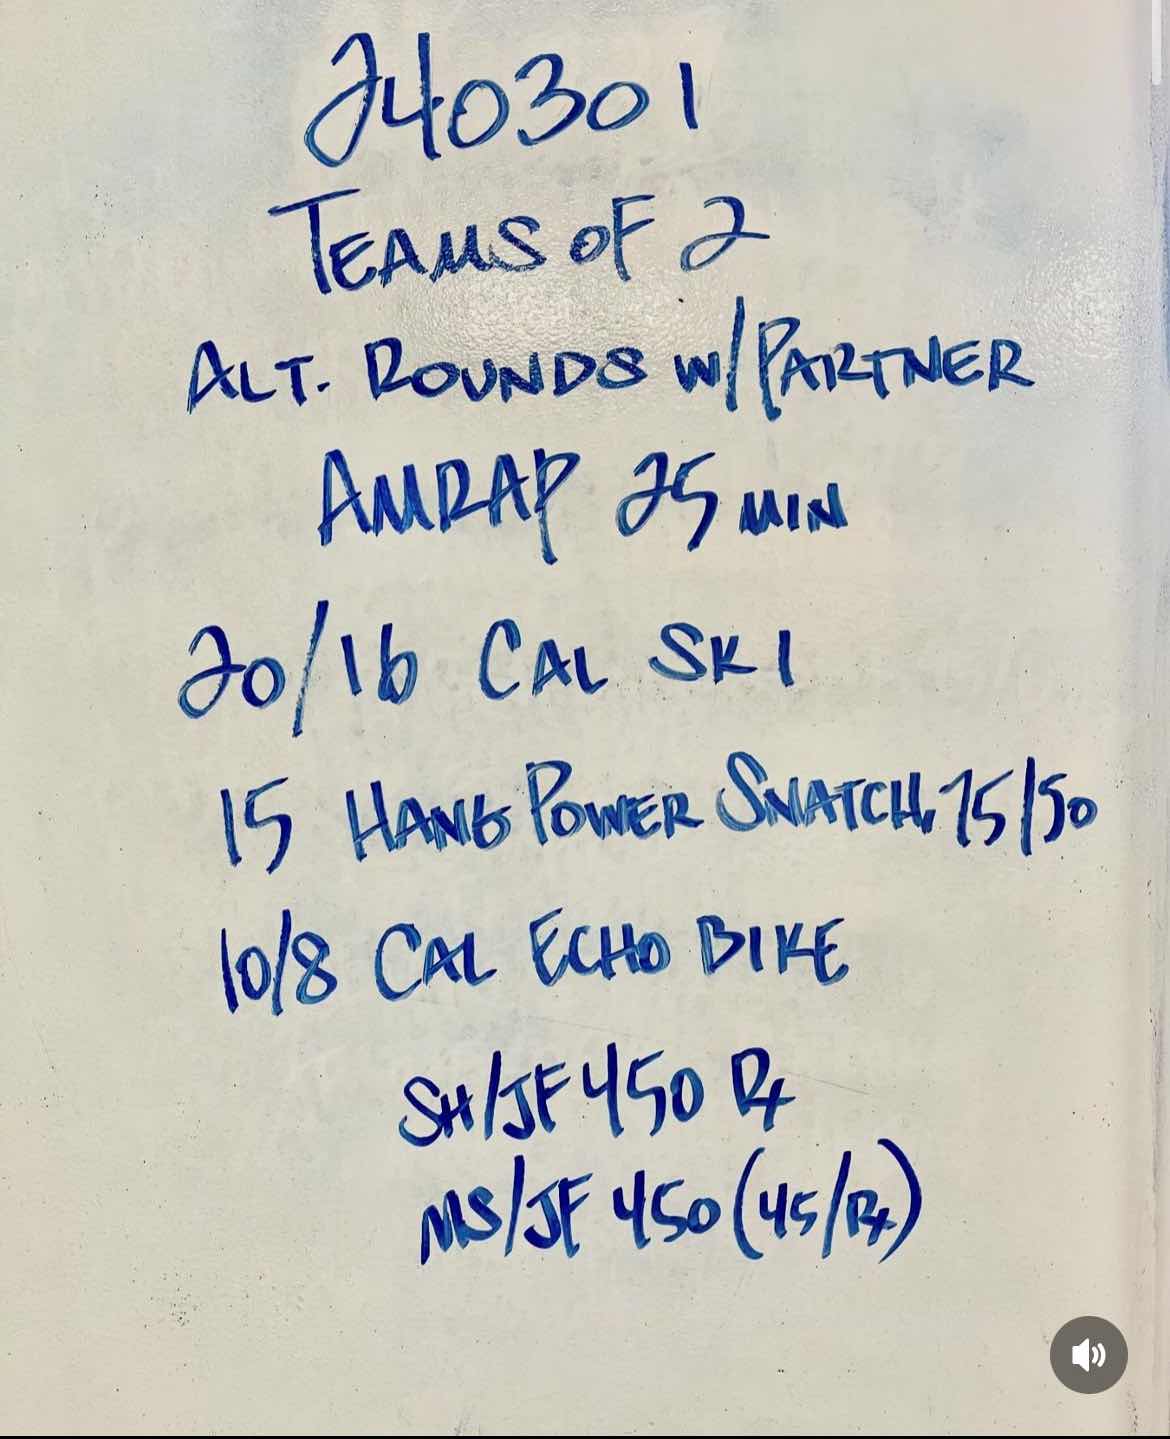 240301
TEAMS OF 2
ALT. ROUNDS W/PARTNER
AMRAP 25 MIN
20/16 CAL SKI
15 HANG POWER SNATCH, 75/50
10/8 CAL ECHO BIKE
SH/JF 450 Rx
MS/JF 450 (45/Rx)